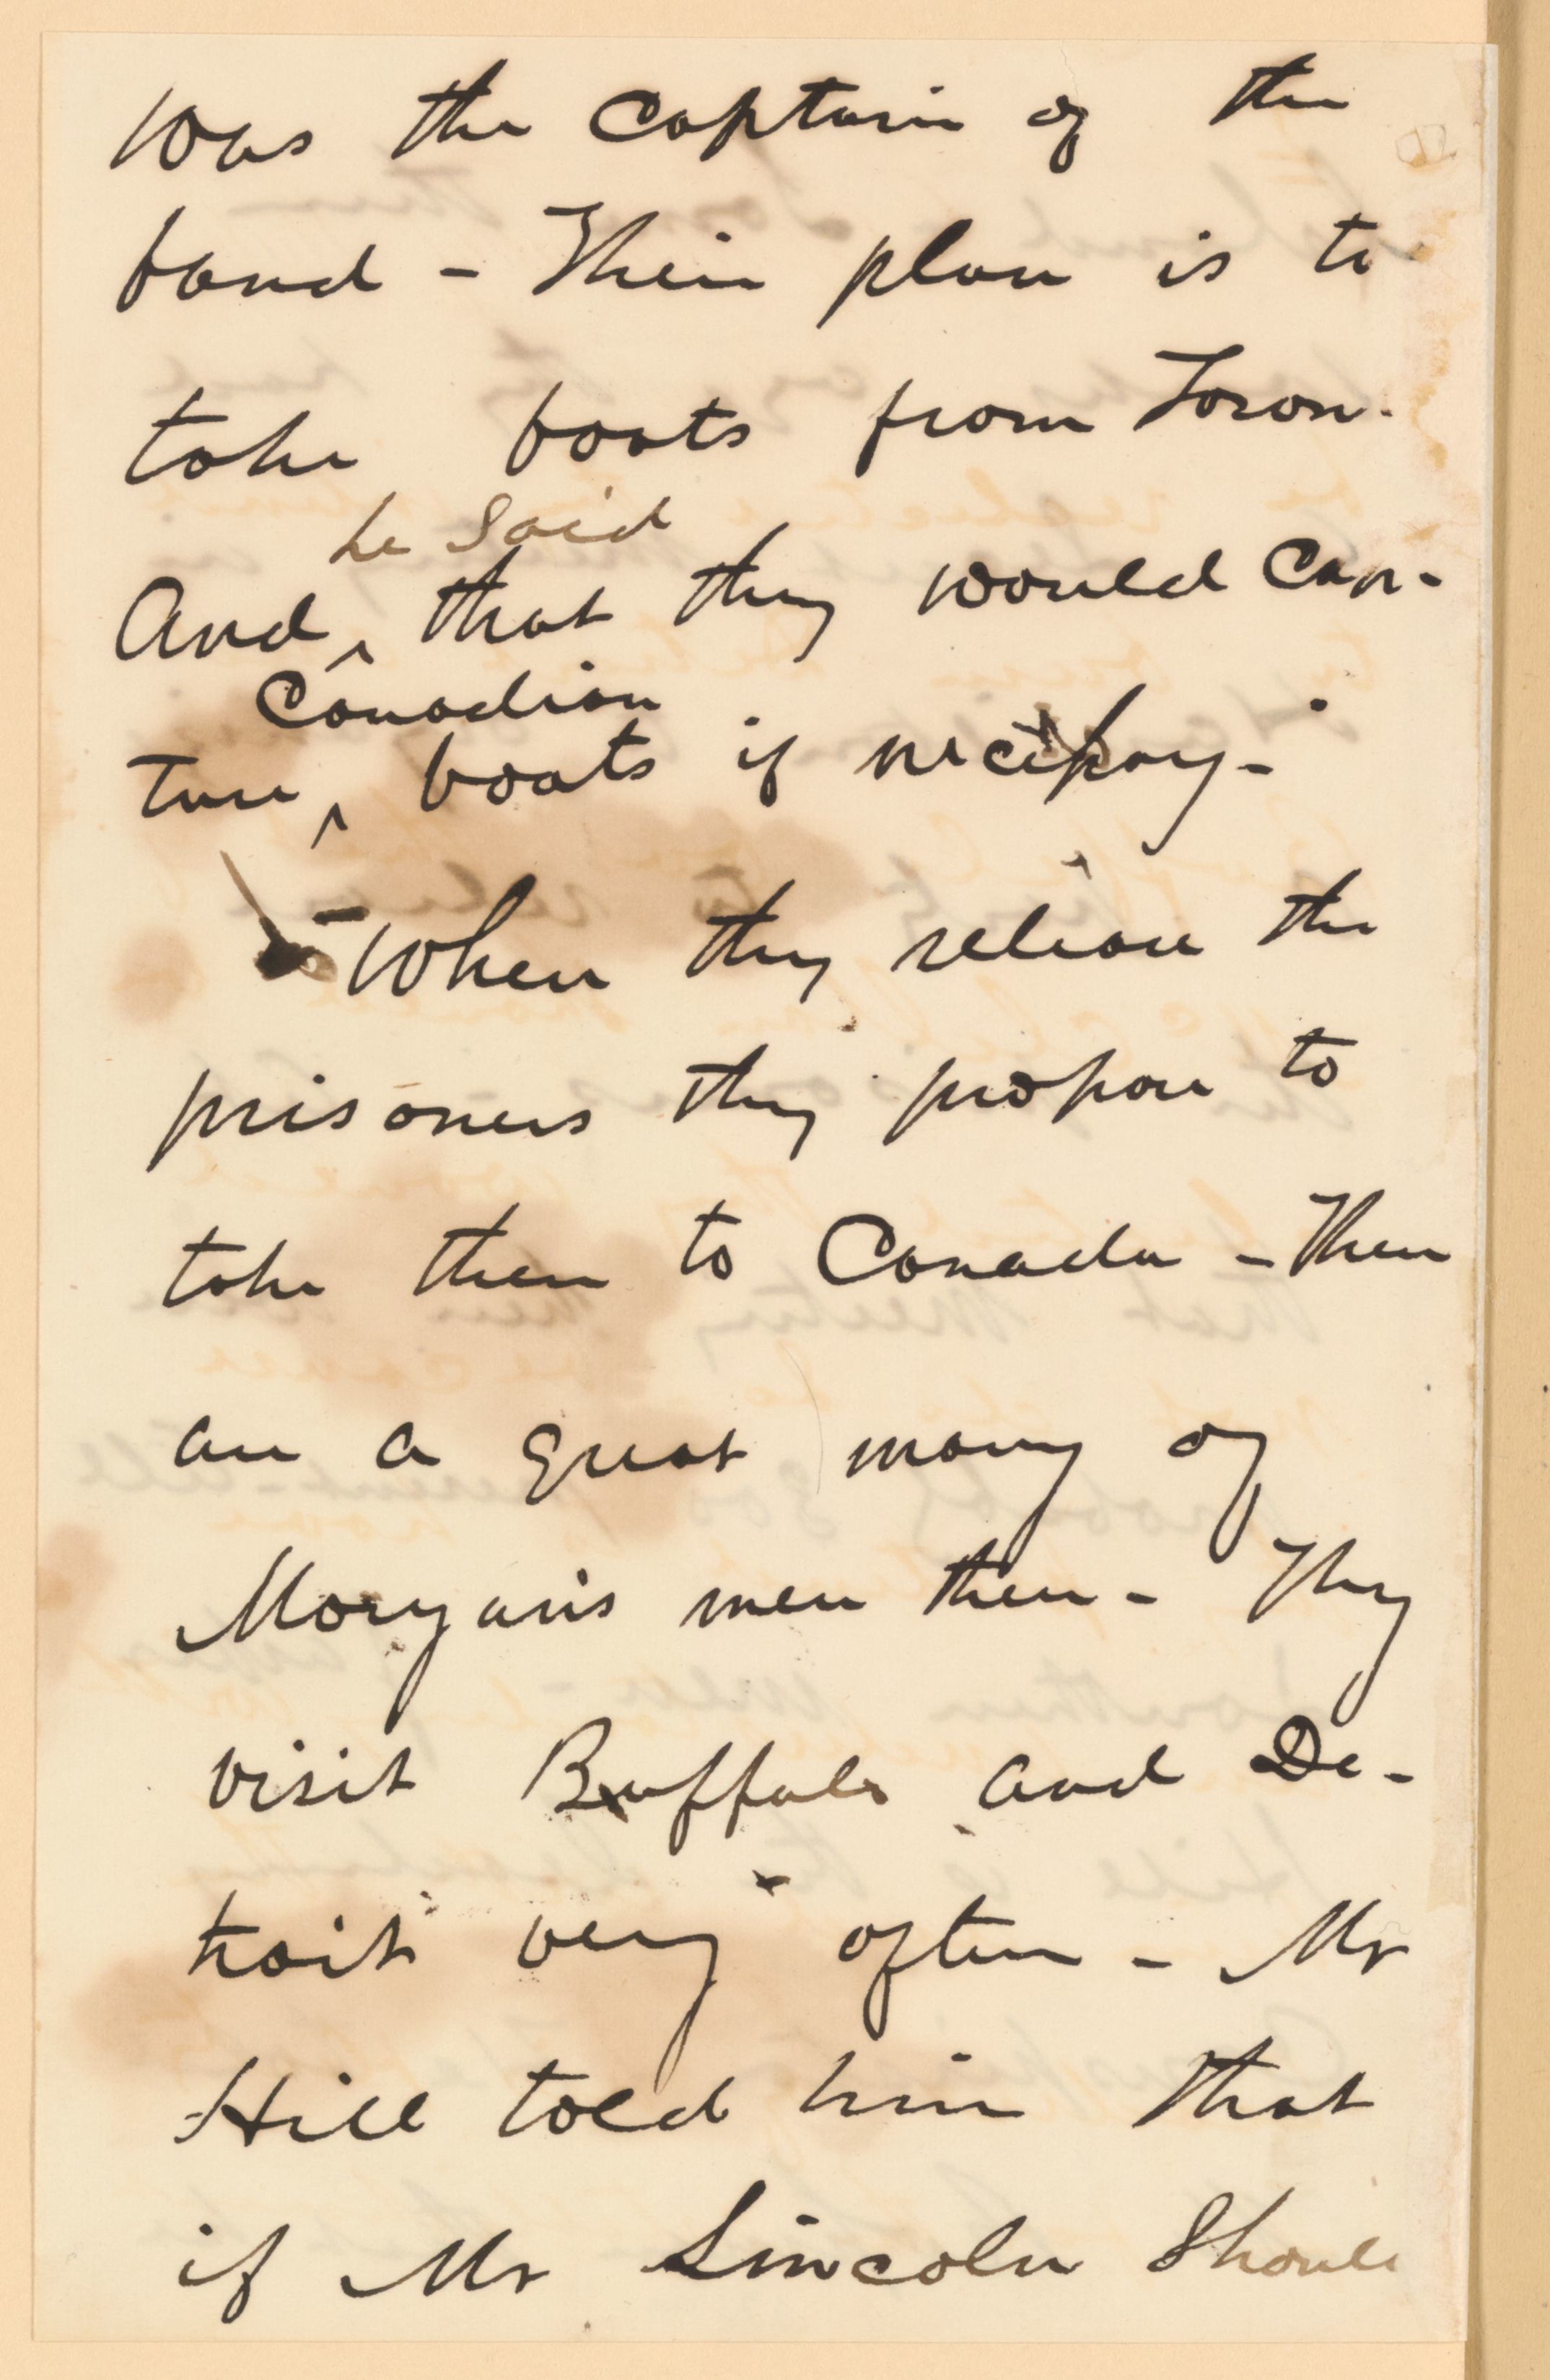 was the Captain of the
band - Their plan is to
take boats from Toron-
he said
And ^ that they would cap-
Canadian
ture ^ boats if necessary -
- When they release the
prisoners they propose to
take them to Canada - There
are a great many of
Morgan's men there - They
visit Buffalo and De-
troit very often - Mr
Hill told him that
if Mr Lincoln should